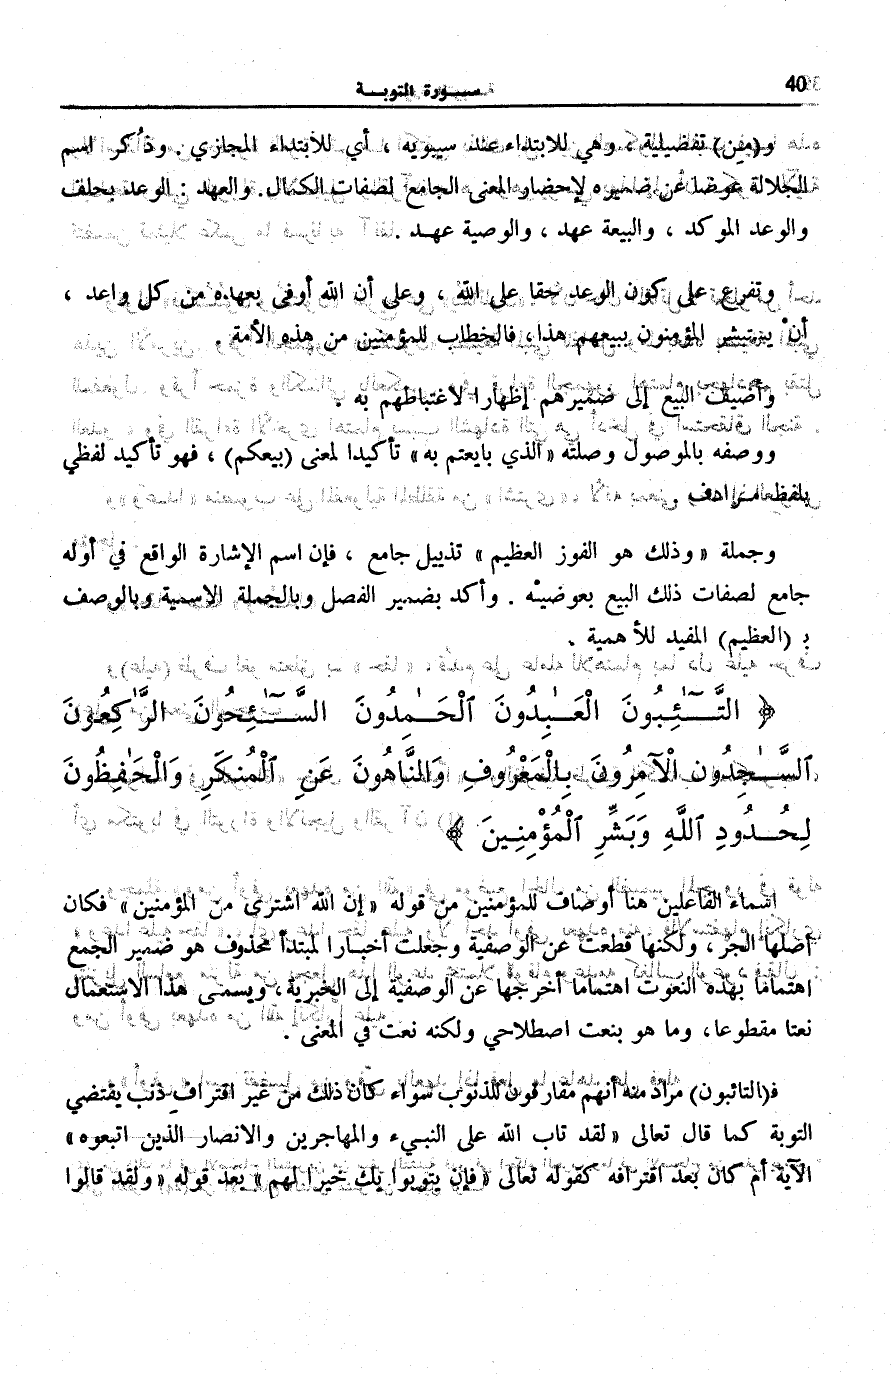 40
سورة التوبة
و(من) تفضيلية ، وهي للابتداء عند سيبويه ، أي للابتداء المجازي . وذُكر اسم
الجلالة عوضا عن ضميره لإحضار المعنى الجامع لصفات الكمال. والعهد : الوعد بحلف
والوعد الموكد ، والبيعة عهد ، والوصية عهد .
وتفرع على كون الوعد حقا على الله ، وعلى أن الله أوفى بعهده من كل واعد ،
أنْ يستبشر المؤمنون ببيعهم هذا، فالخطاب للمؤمنين من هذه الأمة .
وأضيف البيع إلى ضميرهم إظهارا لاغتباطهم به .
ووصفه بالموصول وصلته «الذي بايعتم به» تأكيدا لمعنى (بيعكم) ، فهو تأكيد لفظي
بلفظ مرادف .
وجملة « وذلك هو الفوز العظيم » تذييل جامع ، فإن اسم الإشارة الواقع في أوله
جامع لصفات ذلك البيع بعوضيْه . وأكد بضمير الفصل وبالجملة الاسمية وبالوصف
بـ (العظيم) المفيد للأهمية .
﴿ التَّـٰۤئِبُونَ الْعَـٰبِدُونَ ٱلْحَـٰمِدُونَ السَّـٰۤئِحُونَ الرَّٰكِعُونَ
ٱلسَّـٰجِدُون الْآمِرُونَ بِالْمَعْرُوفِ وَالنَّاهُونَ عَنِ ٱلْمُنكَرِ وَالْحَـٰفِظُونَ
لِحُدُودِ ٱللَّهِ وَبَشِّرِ ٱلْمُؤْمِنِينَ ﴾
اسماء الفاعلين هنا أوصاف للمؤمنين من قوله «إن الله اشترى من المؤمنين» فكان
أصلها الجرّ ، ولكنها قطعت عن الوصفية وجعلت أخبارا لمبتدأ محذوف هو ضمير الجمع
اهتماما بهذه النعوت اهتماما أخرجها عن الوصفية إلى الخبرية، ويسمى هذا الاستعمال
نعتا مقطوعا، وما هو بنعت اصطلاحي ولكنه نعت في المعنى .
فـ(التائبون) مراد منه أنهم مفارقون للذنوب سواء كان ذلك من غير اقتراف ذنب يقتضي
التوبة كما قال تعالى «لقد تاب الله على النبيء والمهاجرين والانصار الذين اتبعوه»
الآية أم كان بعد اقترافه كقوله تعالى «فإن يتوبوا يك خيرا لهم» بعد قوله «ولقد قالوا